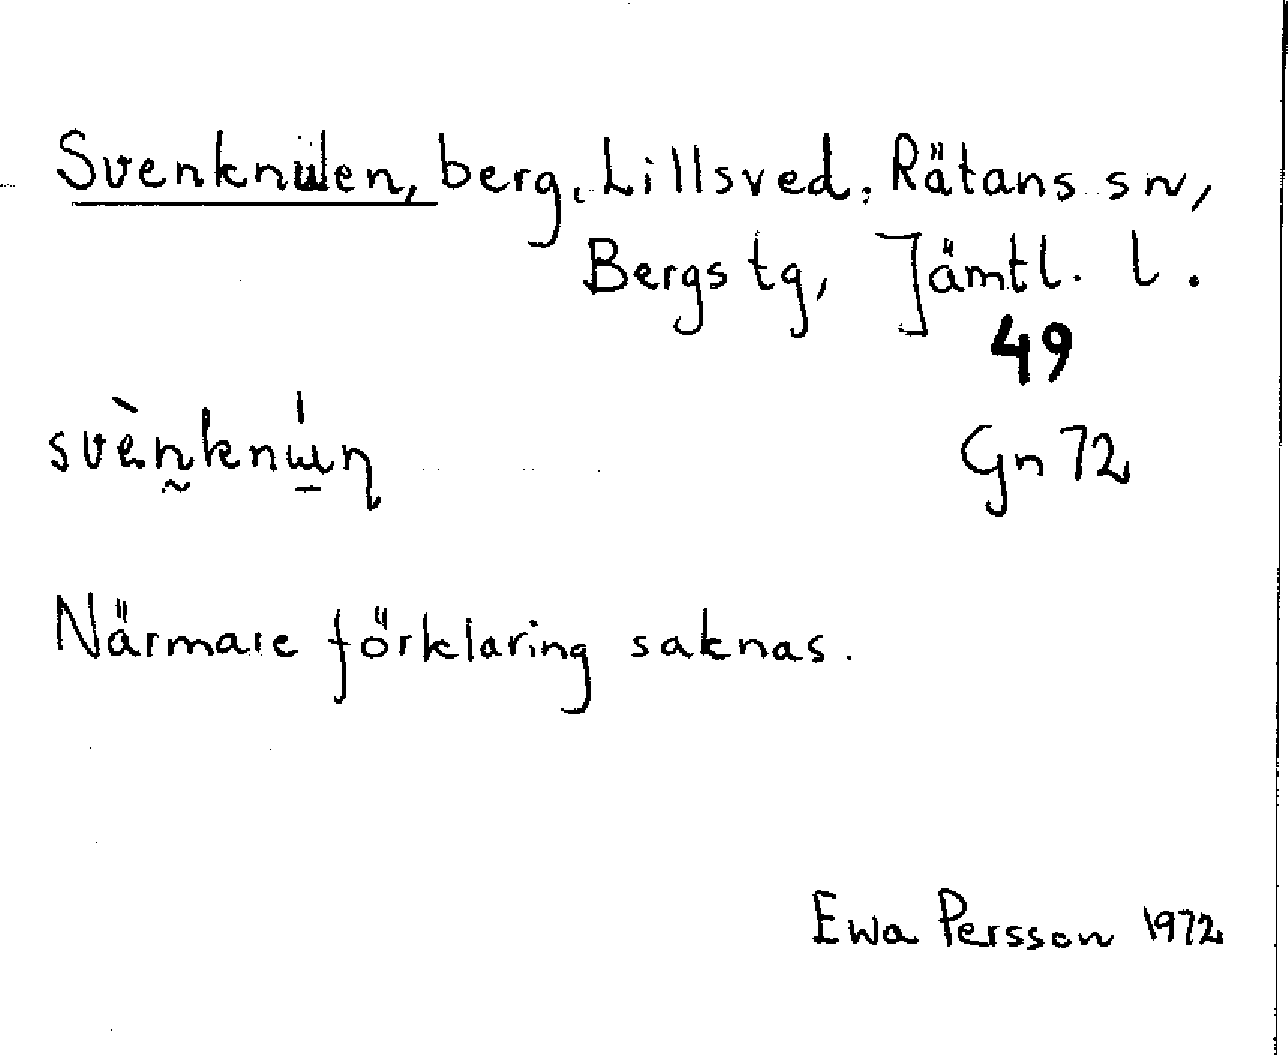 Svenknulen, berg, Lillsved, Rätans sn,
Bergs tg, Jämtl. l.
49
Gn 72
Närmare förklaring saknas.
Ewa Persson 1972